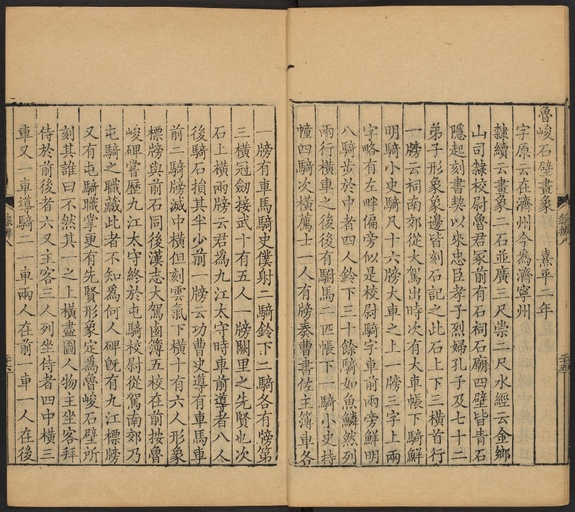 魯峻石壁畫象　熹平二年
字原云在濟州今為濟寧州
隸續云畫象二石並廣三尺崇二尺水經云金鄉
山司隸校尉魯君冢前有石祠石廟四壁皆青石
隱起刻書契以來忠臣孝子烈婦孔子及七十二
弟子形象象邊皆刻石記之此石上下三橫首行
一牓云祠南郊從大駕出時次有大車帳下騎鮮
明騎小史騎凡十六牓大車之上一牓三字上兩
字略有左畔偏旁似是校尉騎字車前兩旁鮮明
八騎步於中者四人鈴下三十餘騎如魚鱗然列
兩行橫車之後後有騎馬二匹帳下一騎小史持
幢四騎次橫薦士一人有牓奏曹書佐主簿車各
一牓有車馬騎史僕射二騎鈴下二騎各有牓第
三橫冠劍接武十有五人一牓闕里之先賢也次
石上橫兩牓云君為九江太守時車前導者八人
後騎石損其半少前一牓云功曹史導有車馬車
前二騎牓滅中橫但刻雲氣下橫十有六人形象
標牓與前石同後漢志大駕鹵簿五校在前按魯
峻碑嘗歷九江太守終於屯騎校尉從駕南郊乃
屯騎之職藏此者不知為何人碑既有九江標牓
又有屯騎職掌更有先賢形象定為魯峻石壁所
刻其誰曰不然其一之上橫盡圖人物主坐客拜
侍於前後者六又主客三人列坐侍者四中橫三
車又一車導騎二一車兩人在前一車一人在後
隸辨八